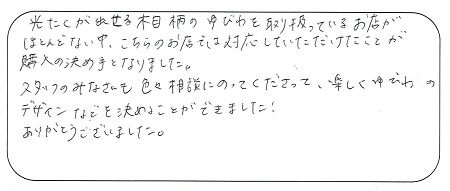 光たくが出せる木目柄のゆびわを取り扱っているお店が
ほとんどない中、こちらのお店では対応していただけたことが
購入の決め手となりました。
スタッフのみなさんも色々相談にのってくださって、楽しくゆびわの
デザインなどを決めることができました!
ありがとうございました。